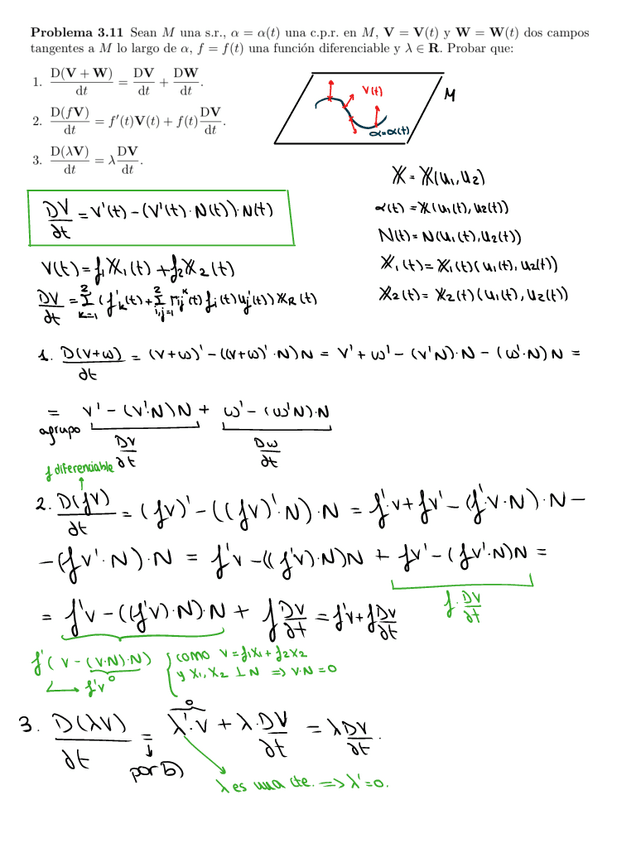 Problema 3.11 Sean M una s.r., α = α(t) una c.p.r. en M, V = V(t) y W = W(t) dos campos
tangentes a M lo largo de α, f = f(t) una función diferenciable y λ ∈ R. Probar que:
1. D(V + W)/dt = DV/dt + DW/dt.
2. D(fV)/dt = f'(t)V(t) + f(t) DV/dt.
3. D(λV)/dt = λ DV/dt.
V(t)
M
α=α(t)
DV/dt = V'(t) - (V'(t)·N(t))·N(t)
X = X(u₁,u₂)
α(t) = X(u₁(t),u₂(t))
N(t) = N(u₁(t),u₂(t))
X₁(t) = X₁(t)(u₁(t),u₂(t))
X₂(t) = X₂(t)(u₁(t),u₂(t))
V(t) = f₁X₁(t) + f₂X₂(t)
DV/dt = Σ²ₖ₌₁ (f'ₖ(t) + Σ²ᵢ,ⱼ₌₁ Γᵢⱼᵏ(t) fᵢ(t) u'ⱼ(t)) Xₖ(t)
1. D(V+W)/dt = (V+W)' - ((V+W)'·N)N = V' + W' - (V'N)·N - (W'·N)N =
= V' - (V'·N)N + W' - (W'N)·N
agrupo
DV/dt DW/dt
f diferenciable
2. D(fV)/dt = (fV)' - ((fV)'·N)·N = f'·V + fV' - (f'·V·N)·N -
- (fV'·N)·N = f'V - ((f'V)·N)N + fV' - (fV'·N)N =
f·DV/dt
= f'V - ((f'V)·N)·N + f DV/dt = f'V + f DV/dt
f'(V - (V·N)·N) como V = f₁X₁ + f₂X₂
0
f'V y X₁, X₂ ⊥ N => V·N = 0
0
3. D(λV)/dt = λ'·V + λ·DV/dt = λ DV/dt.
por b)
λ es una cte. => λ' = 0.